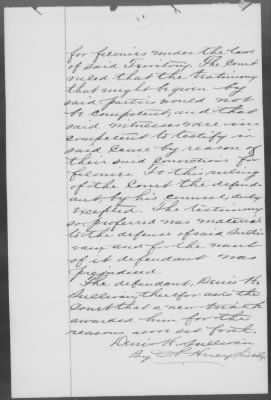 for felonies under the laws
of said Territory. The Court
ruled that the testimony
that might be given by
said parties would not
be competent, and that
said witnesses were in-
competent to testify in
said cause by reason of
their said convictions for
felonies. To this ruling
of the Court the defend-
ant by his counsel, duly
excepted. The testimony
so proferred was material
to the defense of said Sulli-
van and for the want
of it defendant was
prejudiced.
The defendant, Denis H.
Sullivan, therefor asks the
Court that a new trial be
awarded him for the
reasons above set forth.
Denis H. Sullivan
By